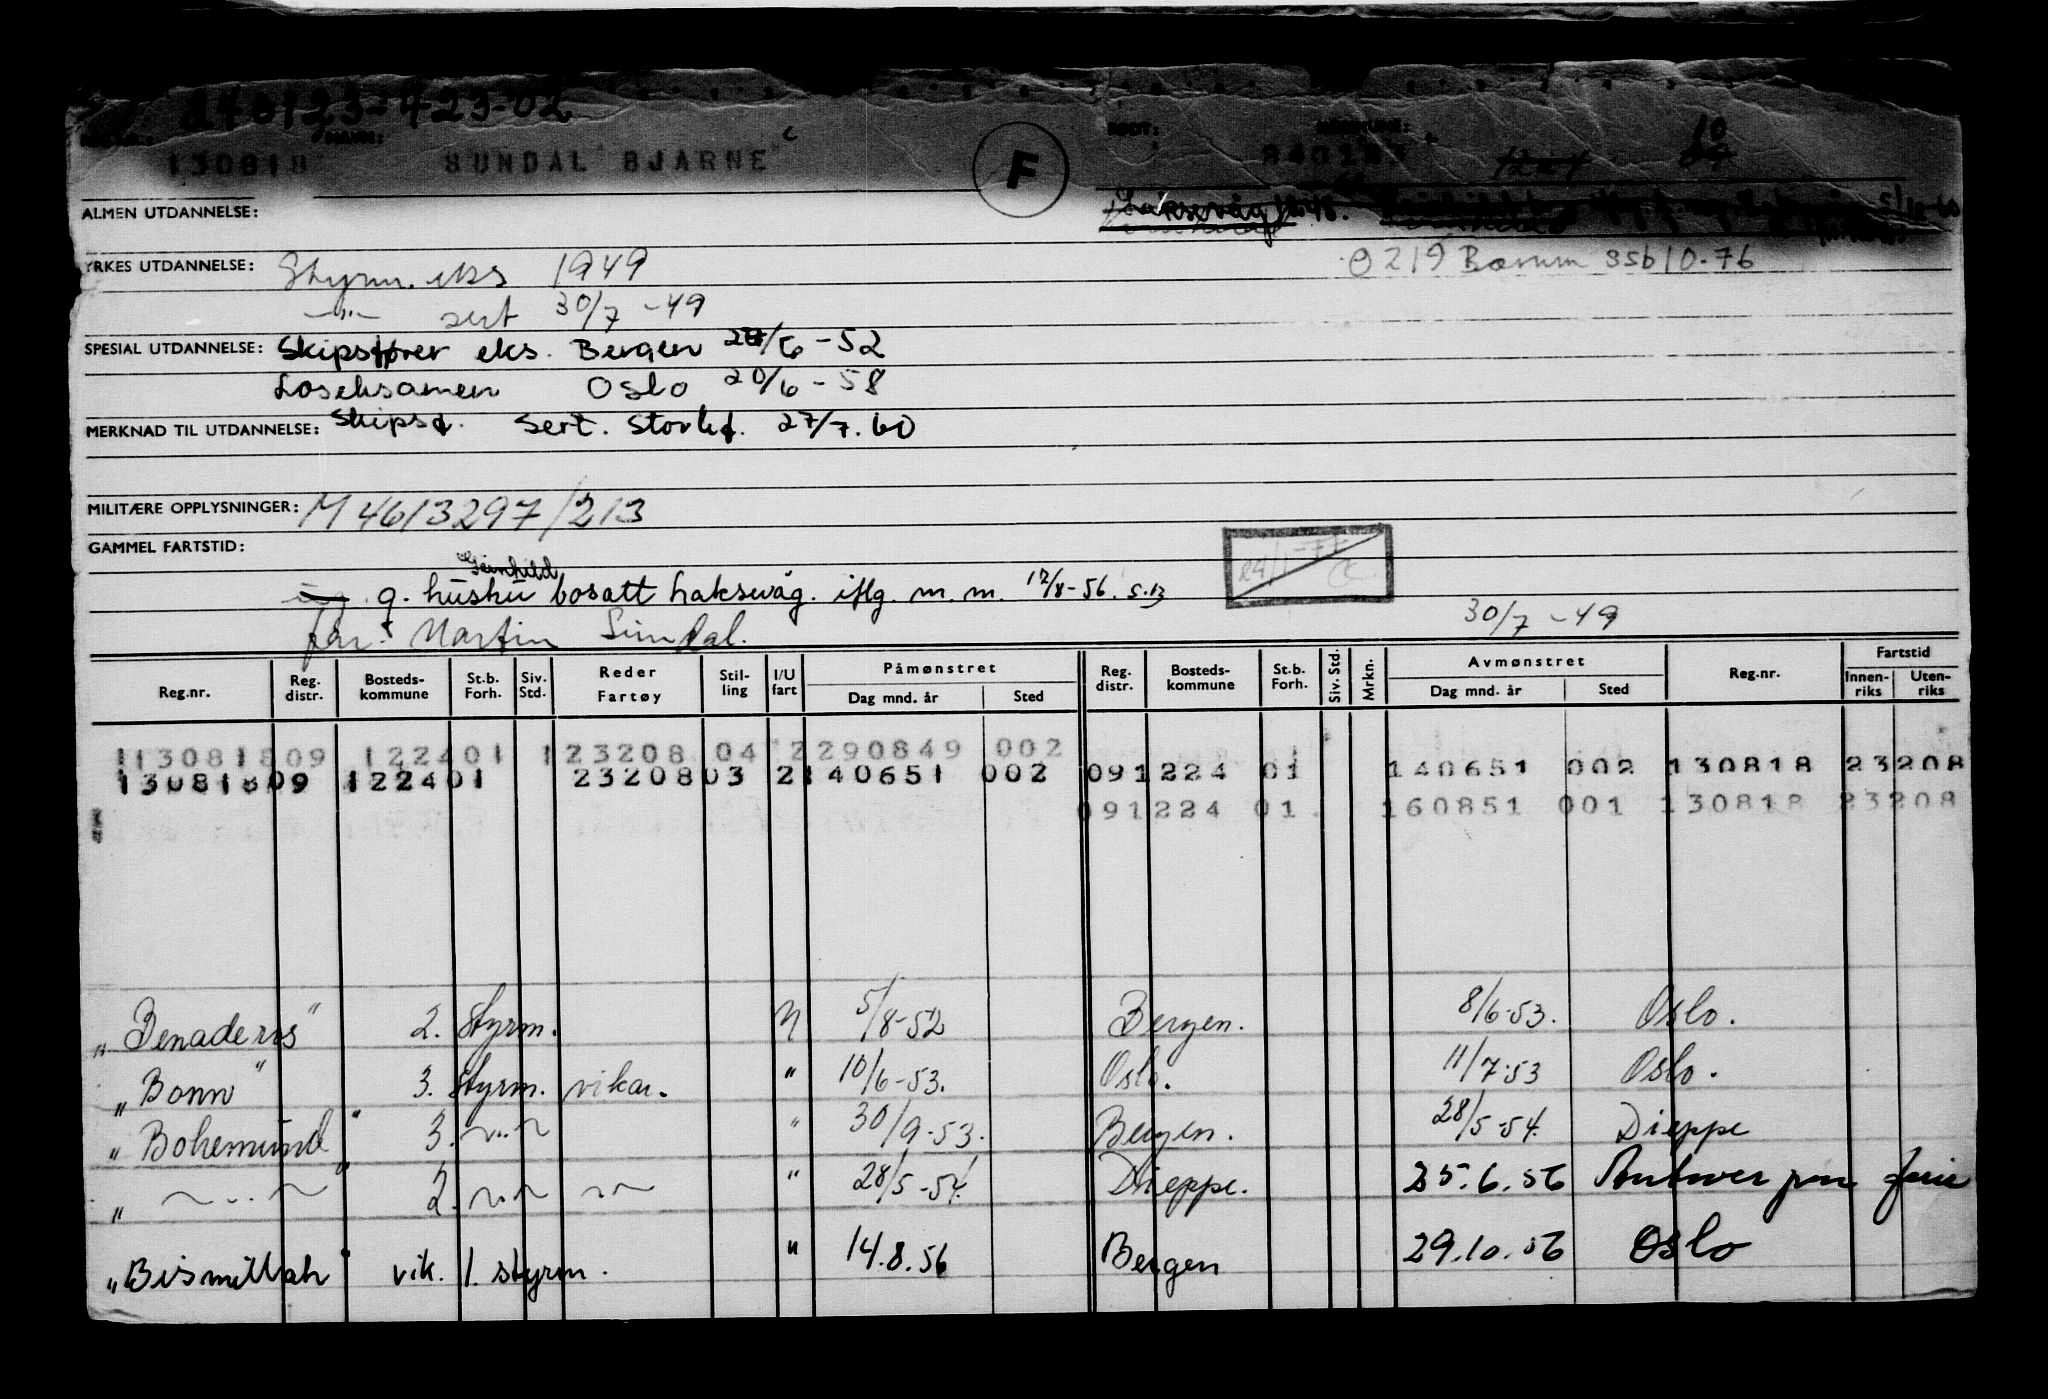 130818 SUNDAL BJARNE
F
ALMEN UTDANNELSE:
YRKES UTDANNELSE: Styrm. eks 1949
0219 Bærum 10.76
—"— sert 30/7 - 49
SPESIAL UTDANNELSE: Skipsfører eks. Bergen /6 - 52
Loseksamen Oslo 20/6 - 58
MERKNAD TIL UTDANNELSE: Skipsf. sert. 27/7.60
MILITÆRE OPPLYSNINGER: M 4613297/213
GAMMEL FARTSTID:
g. hustru bosatt Laksevåg. iflg. m.m. 12/8-56. s.13
far: Martin Sundal.
30/7 - 49
Reg.nr. Reg. distr. Bosteds-kommune St.b. Forh. Siv. Std. Reder Fartøy Stil-ling I/U fart Påmønstret Dag mnd. år Sted Reg. distr. Bosteds-kommune St.b. Forh. Siv. Std. Mrkn. Avmønstret Dag mnd. år Sted Reg.nr. Fartstid Innen-riks Uten-riks
113081809 122401 123208 04 2290849 002
13081809 122401 2320803 2140651 002 091224 01 140651 002 130818 23208
091224 01 160851 001 130818 23208
" 2. Styrm. 5/8-52 Bergen. 8/6-53. Oslo.
"Bonn" 3. Styrm. vikar. " 10/6-53. Oslo. 11/7-53 Oslo.
"Bohemund" 3. ~"~ " 30/9-53. Bergen. 28/5-54. Dieppe
" ~..~ " 2. ~"~ ~"~ " 28/5-54. Dieppe. 25.6.56 Antwerpen ferie
"Bismillah" vik. 1. styrm. " 14.8.56 Bergen 29.10.56 Oslo